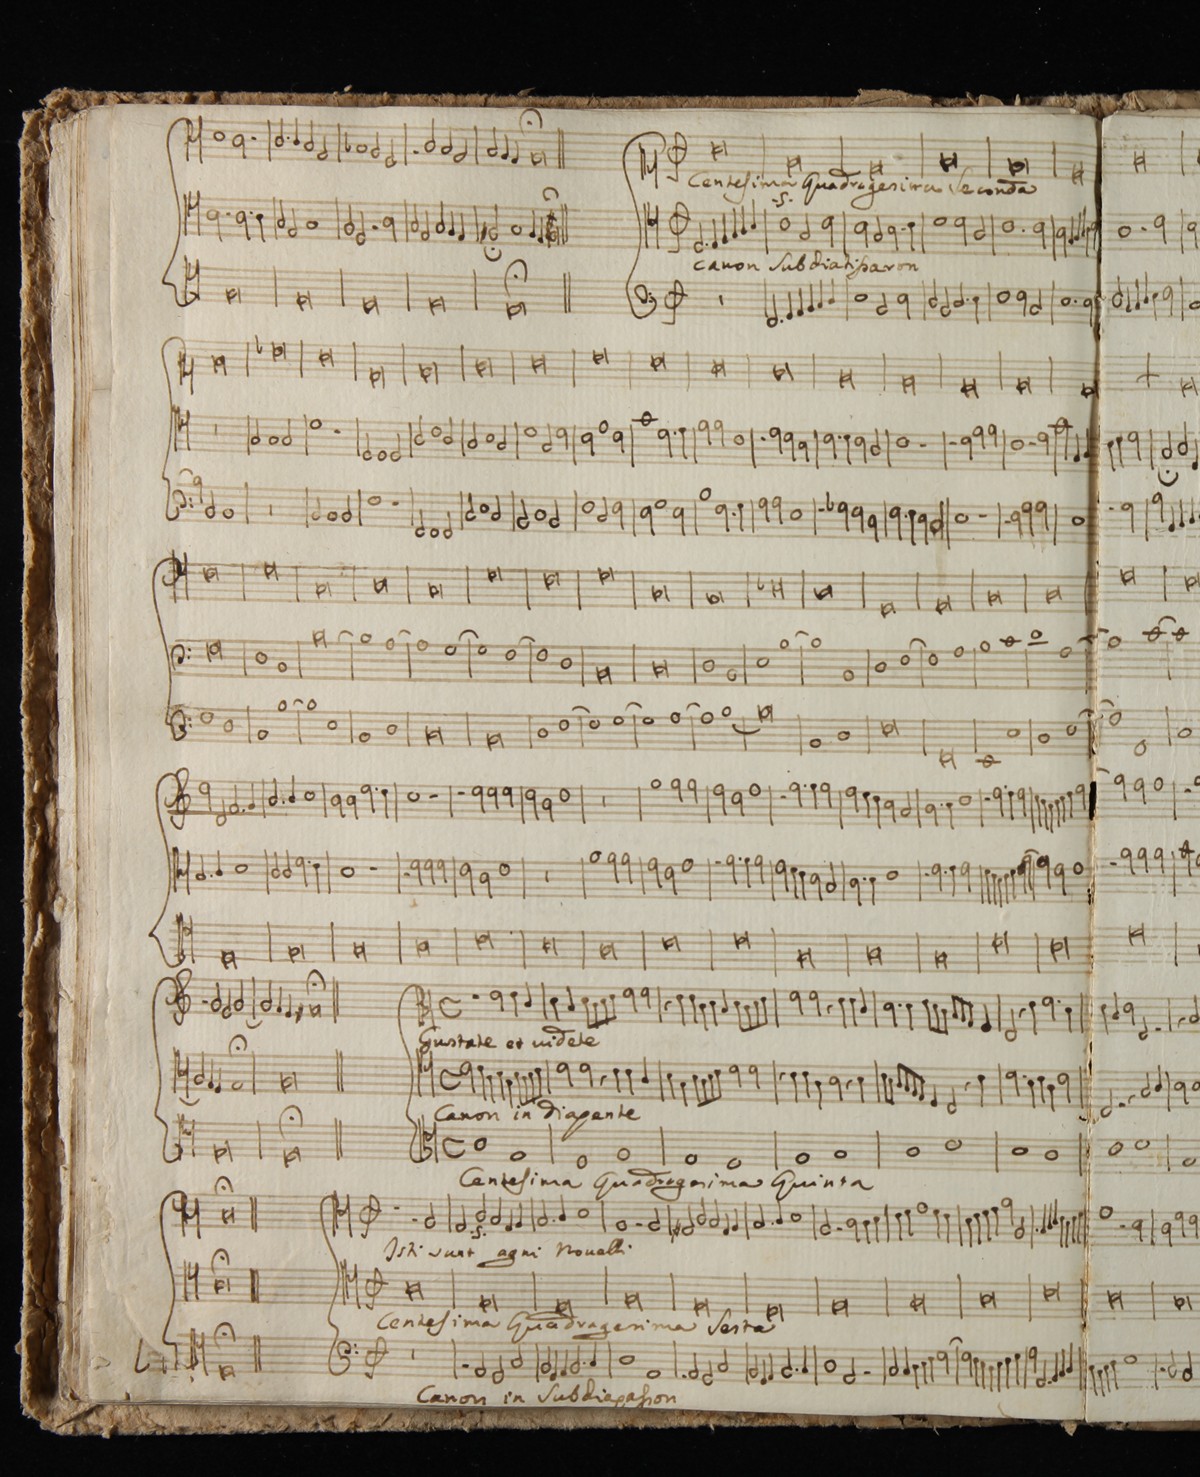 Centesima Quadragesima Seconda
.S.
Canon Subdiatessaron
Gustate et videte
Canon in diapente
Centesima Quadragesima Quinta
.S.
Isti sunt agni Novelli
Centesima Quadragesima Sesta
Canon in Subdiapasson